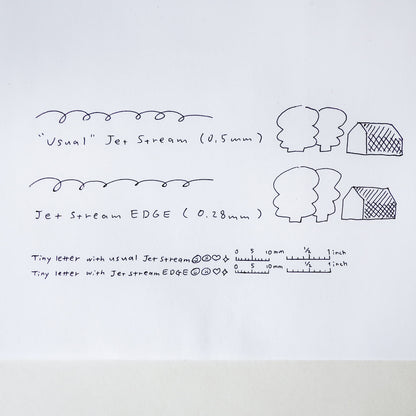 "Usual" Jet Stream (0.5mm)
Jet Stream EDGE (0.28mm)
0 5 10mm ½ 1 inch
Tiny letter with usual Jet Stream
Tiny letter with Jet Stream EDGE
0 5 10mm ½ 1 inch